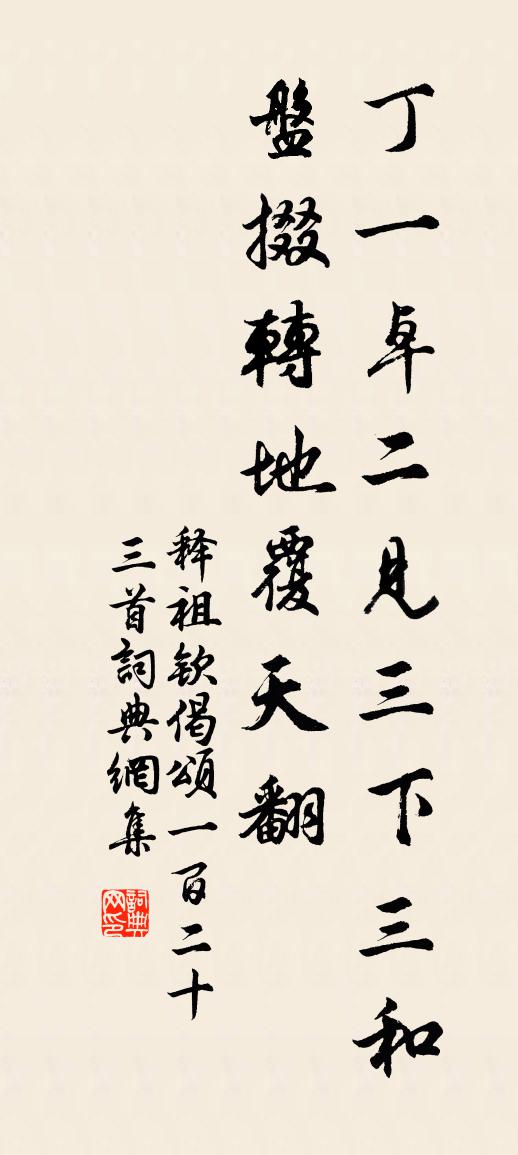 丁一卓二見三下三和
盤掇轉地覆天翻
释祖欽偈頌一百二十
三首詞典網集
詞典网印